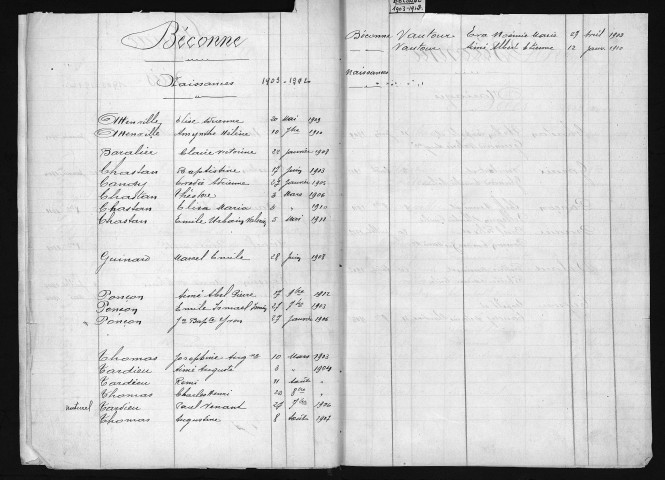 Béconne
Naissances 1903-1912
Menville Elise Etienne 20 Mai 1909
Menville Amynthe Hélène 10 7bre 1910
Baralier Claire Victorine 22 janvier 1908
Chastan Baptistine 17 juin 1903
Candy Etienne 27 janvier 1905
Chastan Théodore 3 Mars 1906
Chastan Eliza Maria 4 " 1910
Chastan Emile Urbain 5 Mai 1912
Guinard Marcel Emile 28 juin 1908
Ponçon Aimé Abel Pierre 17 1902
Ponçon Emile 28 7bre 1903
" Ponçon Jn Bapte Yvon 27 janvier 1906
Thomas Joséphine Augte 10 Mars 1903
Tardieu Aimé Auguste 6 " 1904
Tardieu Rémi 21 Août "
Thomas Charles Henri 20 8bre "
naturel Tardieu Paul Venant 28 7bre 1906
Thomas Augustine 8 Août 1907
1903-1912
Béconne Vautour Eva Noémie Marie 09 Avril 1902
Vautour Aimé Albert Etienne 12 janv. 1910
Naissances